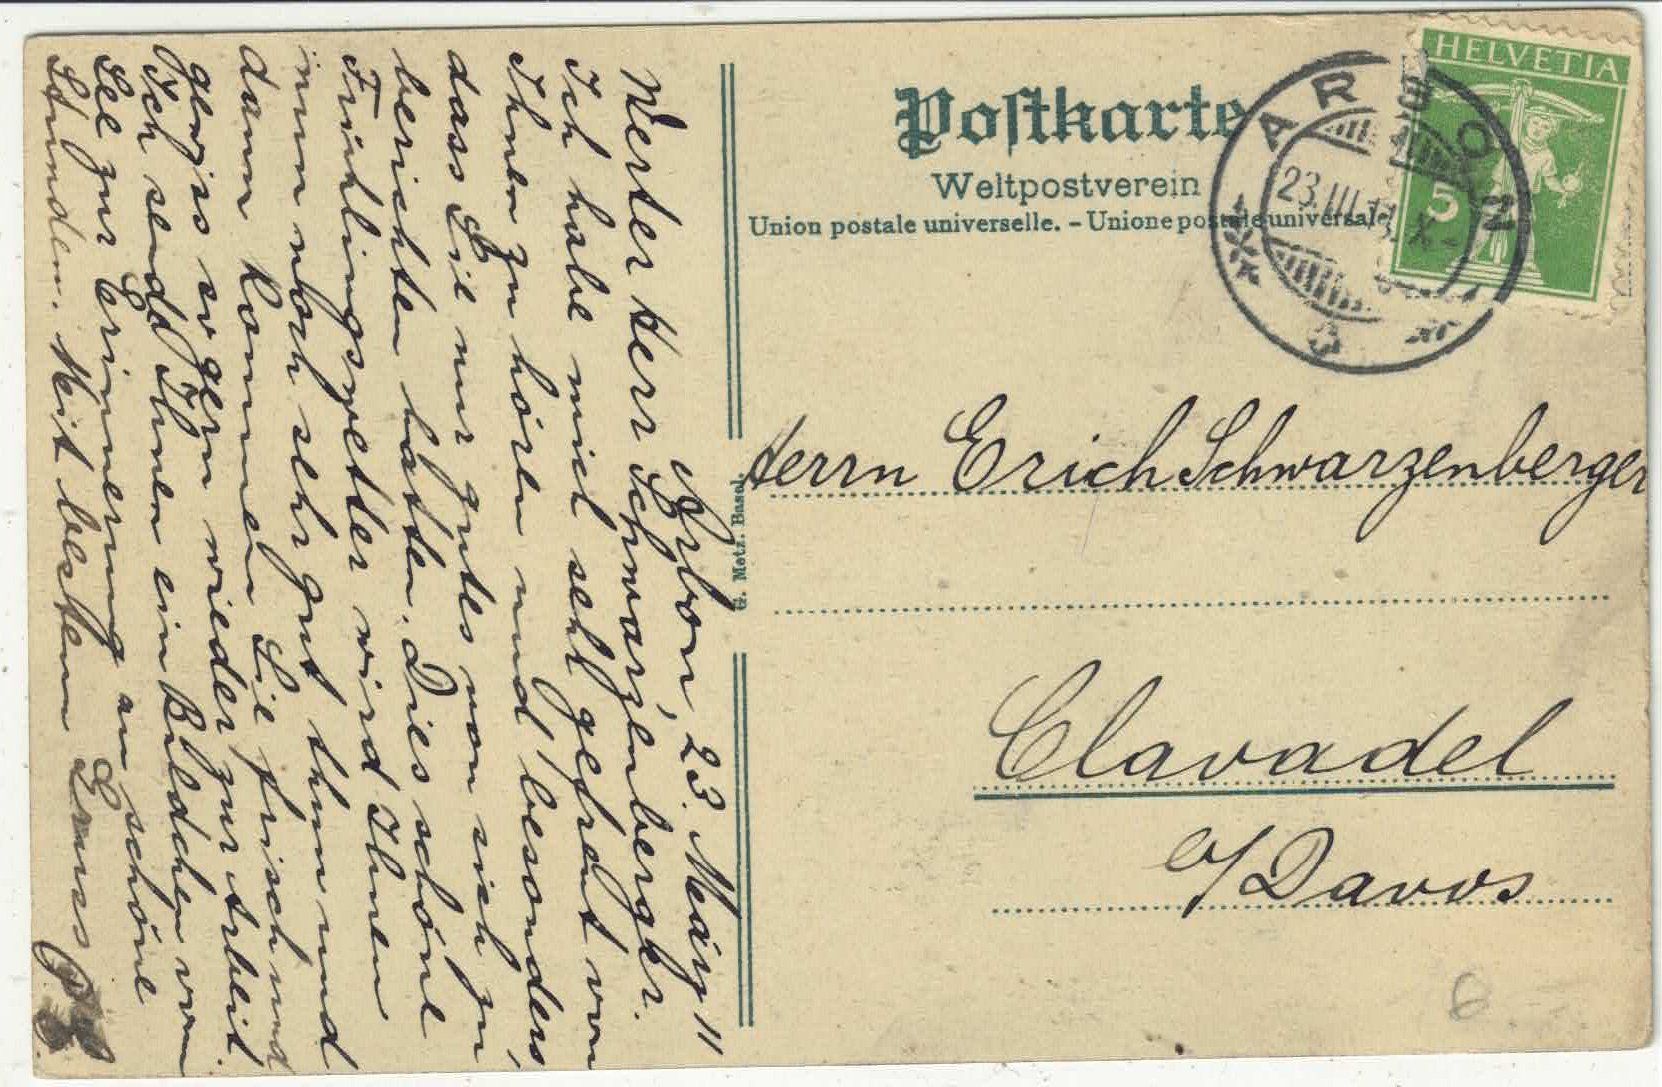 Arbon, 23. März 11
Werter Herr Schwarzenberger.
Ich habe mich sehr gefreut von
Ihnen zu hören und besonders,
dass Sie nur gutes von sich zu
berichten hatten. Dies schöne
Frühlingswetter wird Ihnen
nun noch sehr gut thun und
dann kommen Sie frisch und
gewiss so gern wieder zur Arbeit.
Ich send Ihnen ein Bildchen vom
See zur Erinnerung an schöne
Stunden. Mit bestem Gruss
Postkarte
Weltpostverein
Union postale universelle. – Unione postale universale
G. Metz. Basel.
HELVETIA
5
ARBON
23.III.11.X-
Herrn Erich Schwarzenberger
Clavadel
b/Davos
6